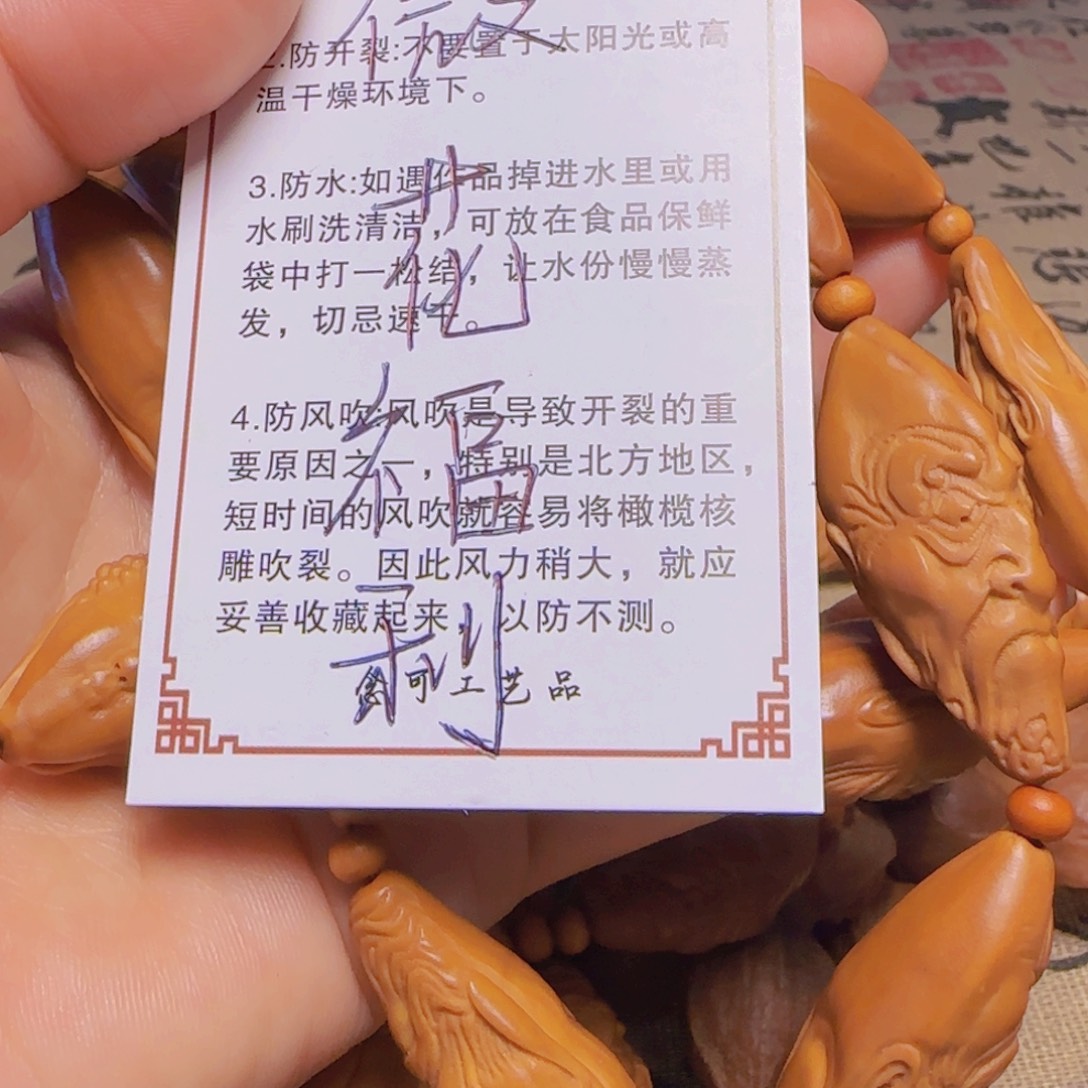 2.防开裂:不要置于太阳光或高
温干燥环境下。
3.防水:如遇作品掉进水里或用
水刷洗清洁，可放在食品保鲜
袋中打一松结，让水份慢慢蒸
发，切忌速干。
4.防风吹:风吹是导致开裂的重
要原因之一，特别是北方地区，
短时间的风吹就容易将橄榄核
雕吹裂。因此风力稍大，就应
妥善收藏起来，以防不测。
可工艺品
福
利